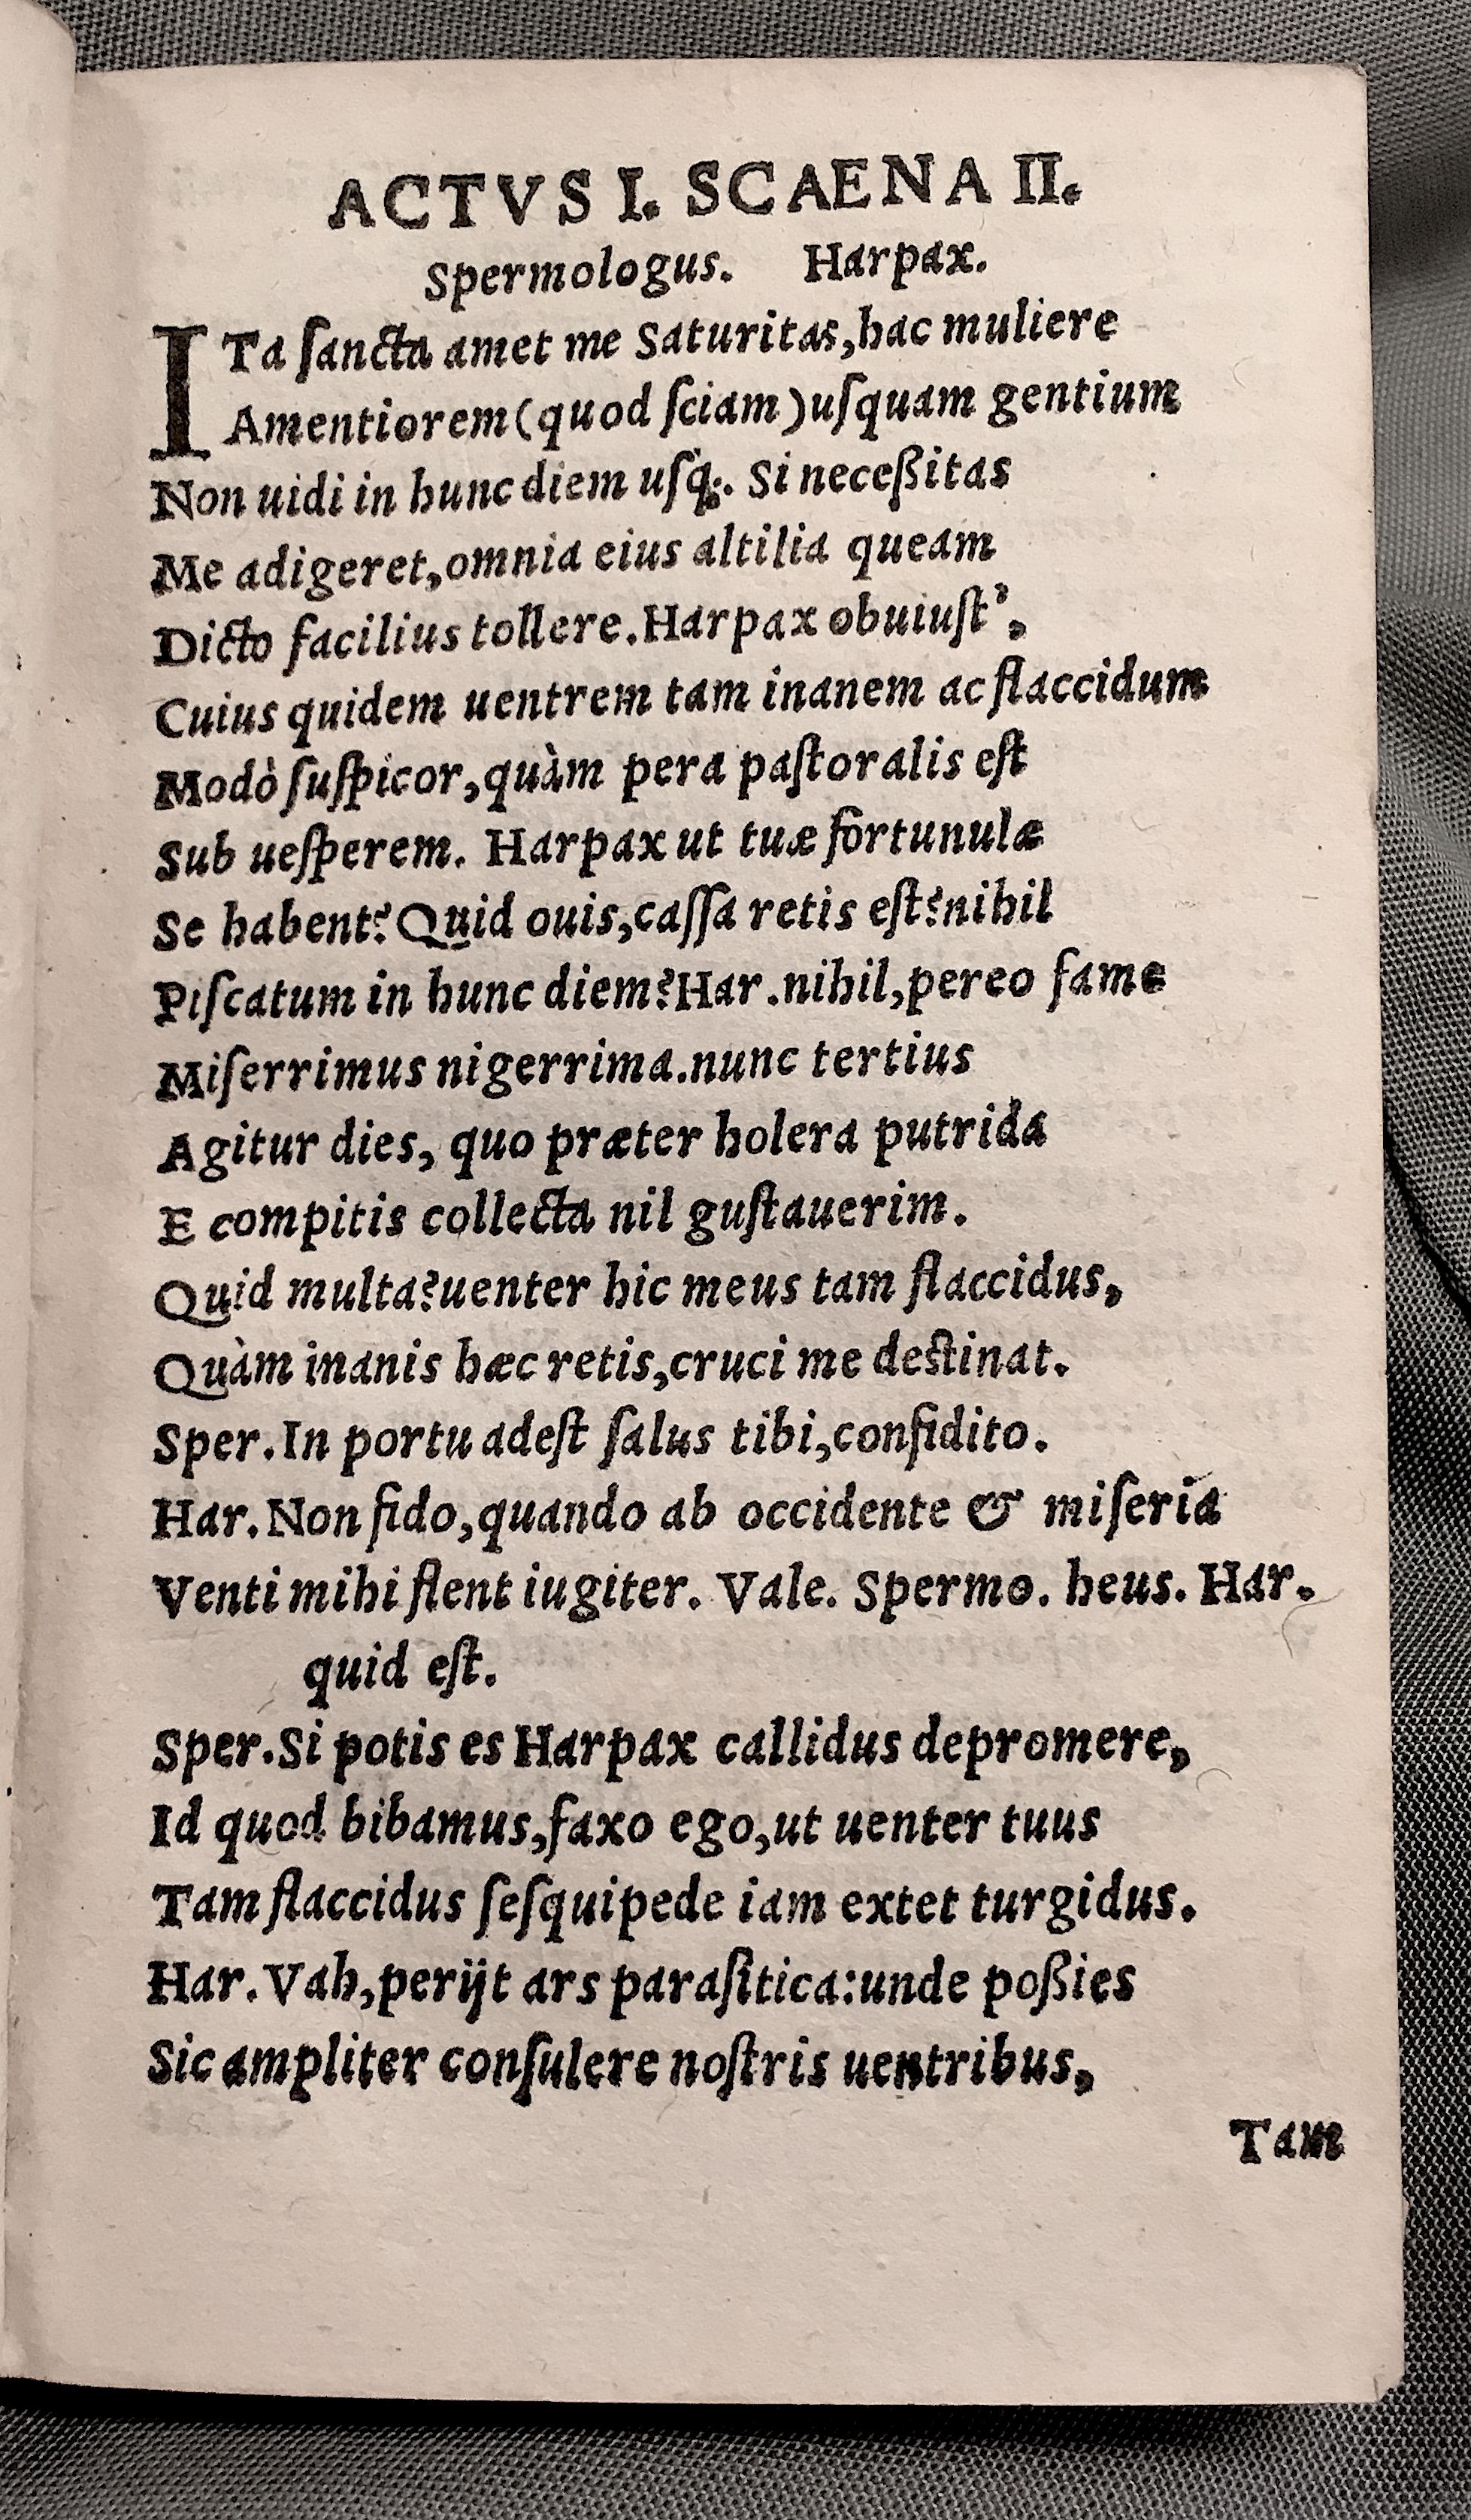 ACTVS I. SCAENA II.
Spermologus. Harpax.
ITa ſancta amet me Saturitas, hac muliere
Amentiorem (quod ſciam) uſquam gentium
Non uidi in hunc diem uſq;. Si neceßitas
Me adigeret, omnia eius altilia queam
Dicto facilius tollere. Harpax obuiuſt',
Cuius quidem uentrem tam inanem ac flaccidum
Modò ſuſpicor, quàm pera paſtoralis eſt
Sub ueſperem. Harpax ut tuæ fortunulæ
Se habent? Quid ouis, caſſa retis eſt? nihil
Piſcatum in hunc diem? Har. nihil, pereo fame
Miſerrimus nigerrima. nunc tertius
Agitur dies, quo præter holera putrida
E compitis collecta nil guſtauerim.
Quid multa? uenter hic meus tam flaccidus,
Quàm inanis hæc retis, cruci me deſtinat.
Sper. In portu adeſt ſalus tibi, confidito.
Har. Non fido, quando ab occidente & miſeria
Venti mihi flent iugiter. Vale. Spermo. heus. Har.
quid eſt.
Sper. Si potis es Harpax callidus depromere,
Id quod bibamus, faxo ego, ut uenter tuus
Tam flaccidus ſeſquipede iam extet turgidus.
Har. Vah, perijt ars paraſitica: unde poßies
Sic ampliter conſulere noſtris uentribus,
Tam